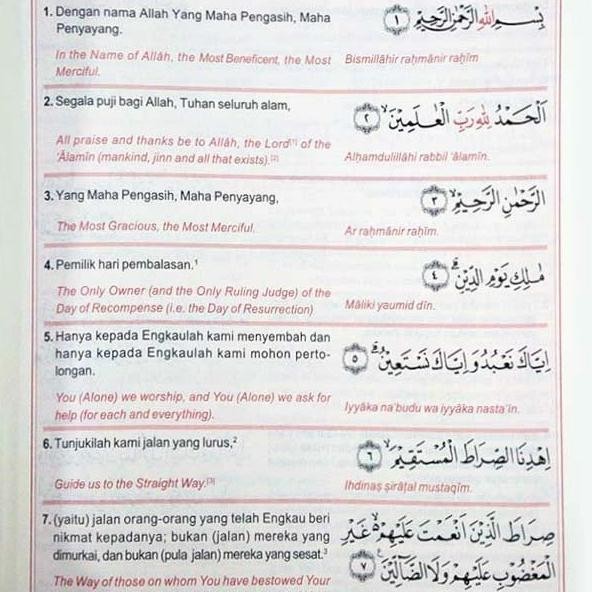 1. Dengan nama Allah Yang Maha Pengasih, Maha
Penyayang.
بِسْمِ اللّٰهِ الرَّحْمٰنِ الرَّحِيْمِ ۝١
In the Name of Allâh, the Most Beneficent, the Most
Merciful.
Bismillâhir raḥmânir raḥîm
2. Segala puji bagi Allah, Tuhan seluruh alam,
اَلْحَمْدُ لِلّٰهِ رَبِّ الْعٰلَمِيْنَۙ ۝٢
All praise and thanks be to Allâh, the Lord[1] of the
'Âlamîn (mankind, jinn and all that exists).[2]
Alḥamdulillâhi rabbil 'âlamîn.
3. Yang Maha Pengasih, Maha Penyayang,
الرَّحْمٰنِ الرَّحِيْمِۙ ۝٣
The Most Gracious, the Most Merciful.
Ar raḥmânir raḥîm.
4. Pemilik hari pembalasan.¹
مٰلِكِ يَوْمِ الدِّيْنِۗ ۝٤
The Only Owner (and the Only Ruling Judge) of the
Day of Recompense (i.e. the Day of Resurrection)
Mâliki yaumid dîn.
5. Hanya kepada Engkaulah kami menyembah dan
hanya kepada Engkaulah kami mohon perto-
longan.
اِيَّاكَ نَعْبُدُ وَاِيَّاكَ نَسْتَعِيْنُۗ ۝٥
You (Alone) we worship, and You (Alone) we ask for
help (for each and everything).
Iyyâka na'budu wa iyyâka nasta'în.
6. Tunjukilah kami jalan yang lurus,²
اِهْدِنَا الصِّرَاطَ الْمُسْتَقِيْمَۙ ۝٦
Guide us to the Straight Way.[3]
Ihdinaṣ ṣirâṭal mustaqîm.
7. (yaitu) jalan orang-orang yang telah Engkau beri
nikmat kepadanya; bukan (jalan) mereka yang
dimurkai, dan bukan (pula jalan) mereka yang sesat.³
صِرَاطَ الَّذِيْنَ اَنْعَمْتَ عَلَيْهِمْ ەۙ غَيْرِ
الْمَغْضُوْبِ عَلَيْهِمْ وَلَا الضَّاۤلِّيْنَ ۝٧
The Way of those on whom You have bestowed Your